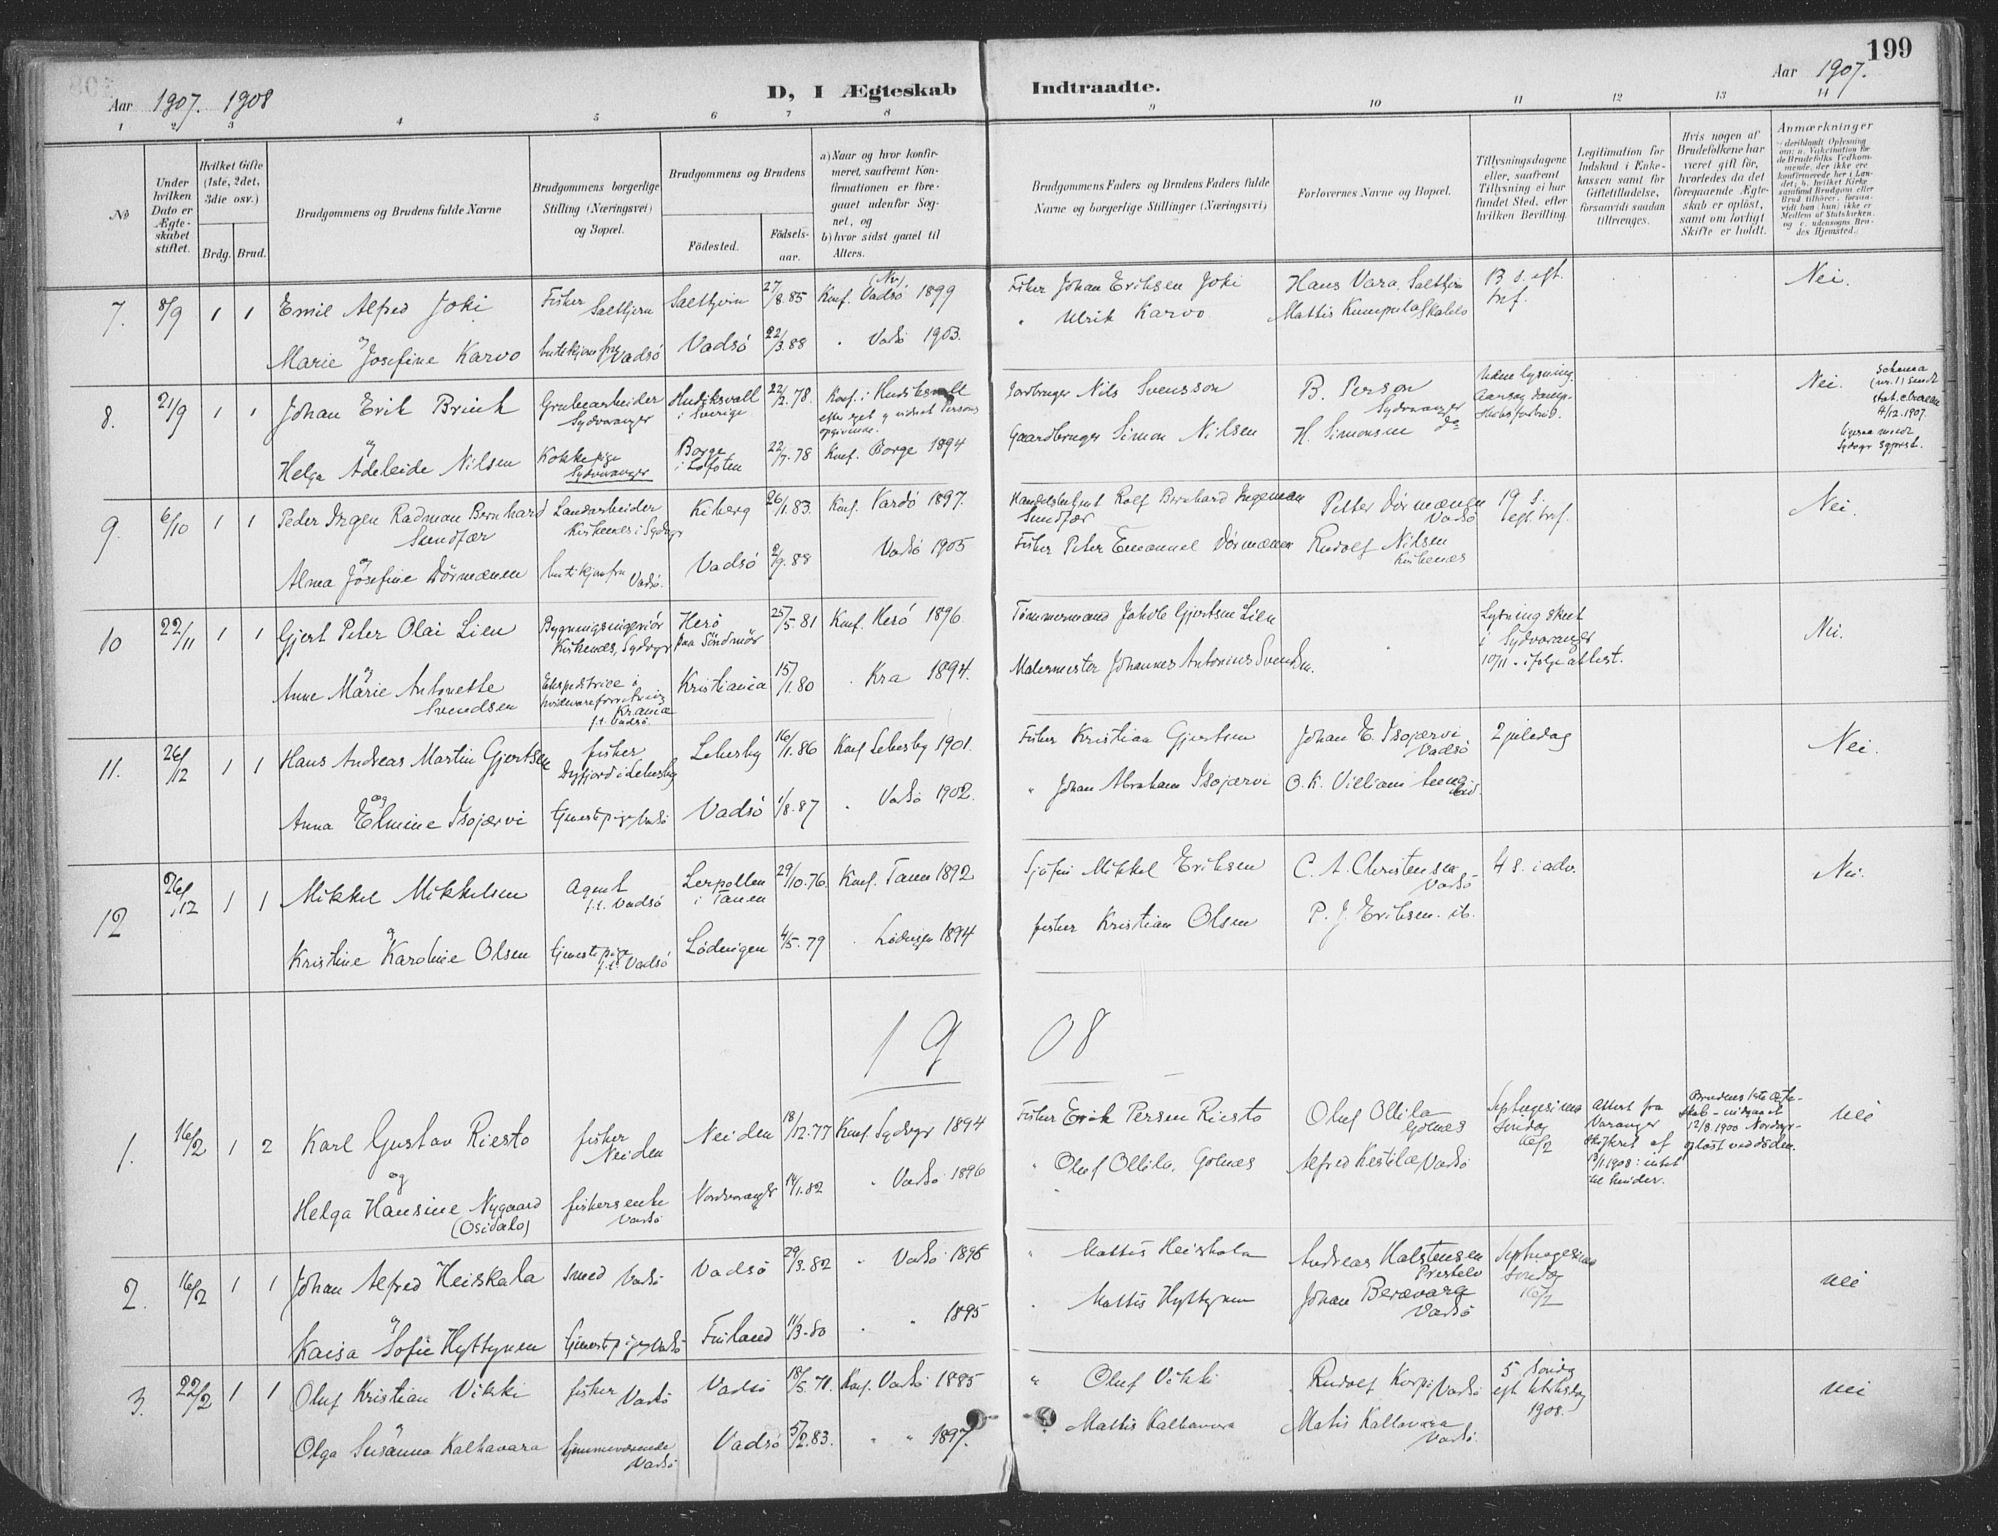 199
Aar 1907. 1908
D, I Ægteskab Indtraadte.
Aar 1907.
1 2 3 4 5 6 7 8 9 10 11 12 13 14
No
Under hvilken Dato er Ægteskabet stiftet.
Hvilket Gifte (1ste, 2det, 3die osv.)
Brdg. Brud.
Brudgommens og Brudens fulde Navne
Brudgommens borgerlige Stilling (Næringsvei) og Bopæl.
Brudgommens og Brudens
Födested.
Födselsaar.
a) Naar og hvor konfirmeret, saafremt Konfirmationen er foregaaet udenfor Sognet, og
b) hvor sidst gaaet til Alters.
Brudgommens Faders og Brudens Faders fulde Navne og borgerlige Stillinger (Næringsvei)
Forlovernes Navne og Bopæl.
Tillysningsdagene eller, saafremt Tillysning ei har fundet Sted, efter hvilken Bevilling.
Legitimation for Indskud i Enkekassen samt for Giftetilladelse, forsaavidt saadan tiltrænges.
Hvis nogen af Brudefolkene har været gift för, hvorledes da det foregaaende Ægteskab er oplöst, samt om lovligt Skifte er holdt.
Anmærkninger
7. 8/9 1 1 Emil Alfred Joki Fisker Saltjern Saltjern 27/8.85 Konf. Vadsö (Nv) 1899 Fisker Johan Eriksen Joki Hans Vara, Saltjern 13 s. eft. tref. Nei.
og
Marie Josefine Karvo butikjomfru Vadsö Vadsö 22/3.88 " Vadsö 1903. " Ulrik Karvo Mattis Kumpula Skallelv
8. 21/9 1 1 Johan Erik Brink Grubearbeider Sydvaranger Hudiksvall i Sverige 22/2.78. Konf. i Hudiksvall efter eget og vidnet Persons opgivende. Jordbruger Nils Svensson B. Person Sydvaranger Uden lysning. Nei.
og
Helga Adeleide Nilsen Kokkepige Sydvaranger Borge i Lofoten 22/7.78 Konf. Borge 1894 Gaardbruger Simon Nilsen H. Simonsen do
9. 6/10 1 1 Peder Ingen Radman Bernhard Sundfær Landarbeider Kirkenes i Sydvgr Kiberg 26/1.83. Konf. Vardö 1897. Rolf Bernhard Ingeman Sundfær Petter Dörmænen Vadsö 19 s. eft. tref. Nei.
og
Alma Josefine Dörmænen butikjomfru Vadsö. Vadsö 2/9.88 Vadsö 1905 Fisker Peter Emanuel Dörmænen Rudolf Nilsen Kirkenes
10 22/11 1 1 Gjert Peter Olai Lien Bygningsingeniör Kirkenes, Sydvgr Herö paa Söndmör 25/5.81 Konf. Herö 1896. Tömmermand Jakob Gjertsen Lien Lysning skeet i Sydvaranger 10/11 - ifölge attest. Nei.
og
Anne Marie Antonette Svendsen Ekspeditrice i hvidevareforretning Krania f.t. Vadsö. Kristiania 15/1.80 " Kra 1894. Malermester Johannes Antonius Svendsen.
11. 26/12 1 1 Hans Andreas Martin Gjertsen fisker Dyfjord i Lebesby Lebesby 16/1.86 Konf Lebesby 1901. Fisker Kristian Gjertsen Johan E. Isojærvi Vadsö 2 juledag Nei.
og
Anna Elmine Isojærvi tjenestepige Vadsö Vadsö 1/8.87 " Vadsö 1902. " Johan Abraham Isojærvi O. K. Villiam
12 26/12 1 1 Mikkel Mikkelsen Agent f.t. Vadsö Lerpollen i Tanen 29/10.76. Konf. Tanen 1892 Mikkel Eriksen C. A. Christensen Vadsö 4 s. i adv. Nei.
og
Kristine Karoline Olsen tjenestepige f.t. Vadsö Lödingen 4/5.79 " Lödingen 1894 fisker Kristian Olsen P. J. Eriksen. ib.
1908
1. 16/2 1 2 Karl Gustav Riesto fisker Neiden Neiden 18/12.77 Konf. Sydvgr 1894 Fisker Erik Persen Riesto Oluf Ollila Golnes Septuagesima söndag 16/2 Attest fra Varanger skifteret af 1908: intet til hinder. Brudens 1ste Ægteskab - indgaaet 12/8 1900 Nordvgr - oplöst ved döden. nei
og
Helga Hansine Nygaard (Osidalo) fiskersenke Vadsö Nordvaranger 14/1.82 " Vadsö 1896 " Oluf Ollila, Golnes Alfred Kestila Vadsö
2. 16/2 1 1 Johan Alfred Heiskala smed Vadsö Vadsö 29/3.82 " Vadsö 1895 " Mattis Heiskala Andreas Halstensen Prestelv Septuagesima söndag 16/2 nei
og
Kaisa Sofie Hyttynen tjenestepige Vadsö Finland 11/3.80 " " 1895 " Mattis Hyttynen Johan Beravara Vadsö
3. 22/2 1 1 Oluf Kristian Vikki fisker Vadsö Vadsö 18/5.71. Konf. Vadsö 1885 " Oluf Vikki Rudolf Korpi Vadsö 5 söndag eft 1908. nei
og
Olga Susanna Kalhavara hjemmeværende Vadsö Vadsö 5/2.83. " " 1897. " Mattis Kalhavara Matis Kallavara Vadsö.